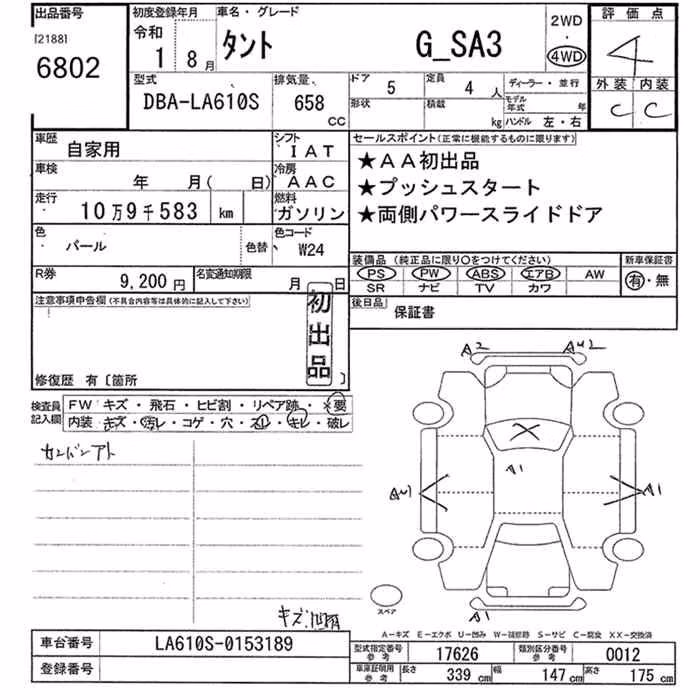 出品番号
[2188]
6802
初度登録年月
令和
1 8月
車名・グレード
タント G_SA3
2WD
・
4WD
評価点
4
外装 内装
C C
型式
DBA-LA610S
排気量
658
CC
ドア 5
定員 4人
ディーラー・並行
形状
積載 kg
モデル年式 年
ハンドル 左・右
車歴 自家用
シフト IAT
車検 年 月( 日)
冷房 AAC
走行 10万9千583 km
燃料 ガソリン
色 パール
色替
色コード W24
R券 9,200円
名変通知期限 月 日
セールスポイント(正常に機能するものに限ります)
★AA初出品
★プッシュスタート
★両側パワースライドドア
装備品(純正品に限り○をつけてください)
新車保証書
PS PW ABS エアB AW
SR ナビ TV カワ
有・無
後日品 保証書
注意事項申告欄(不具合内容等は具体的に記入して下さい)
初出品
修復歴 有〔箇所 〕
検査員記入欄
FW キズ・飛石・ヒビ割・リペア跡・×要
内装 キズ・汚レ・コゲ・穴・スレ・キレ・破レ
カンバンアト
A2
A1
A1
A1
スペア
A―キズ E―エクボ U―凹み W―補修跡 S―サビ C―腐食 XX―交換済
車台番号 LA610S-0153189
登録番号
型式指定番号 参考 17626
類別区分番号 参考 0012
車庫証明用 参考
長さ 339 cm
幅 147 cm
高さ 175 cm